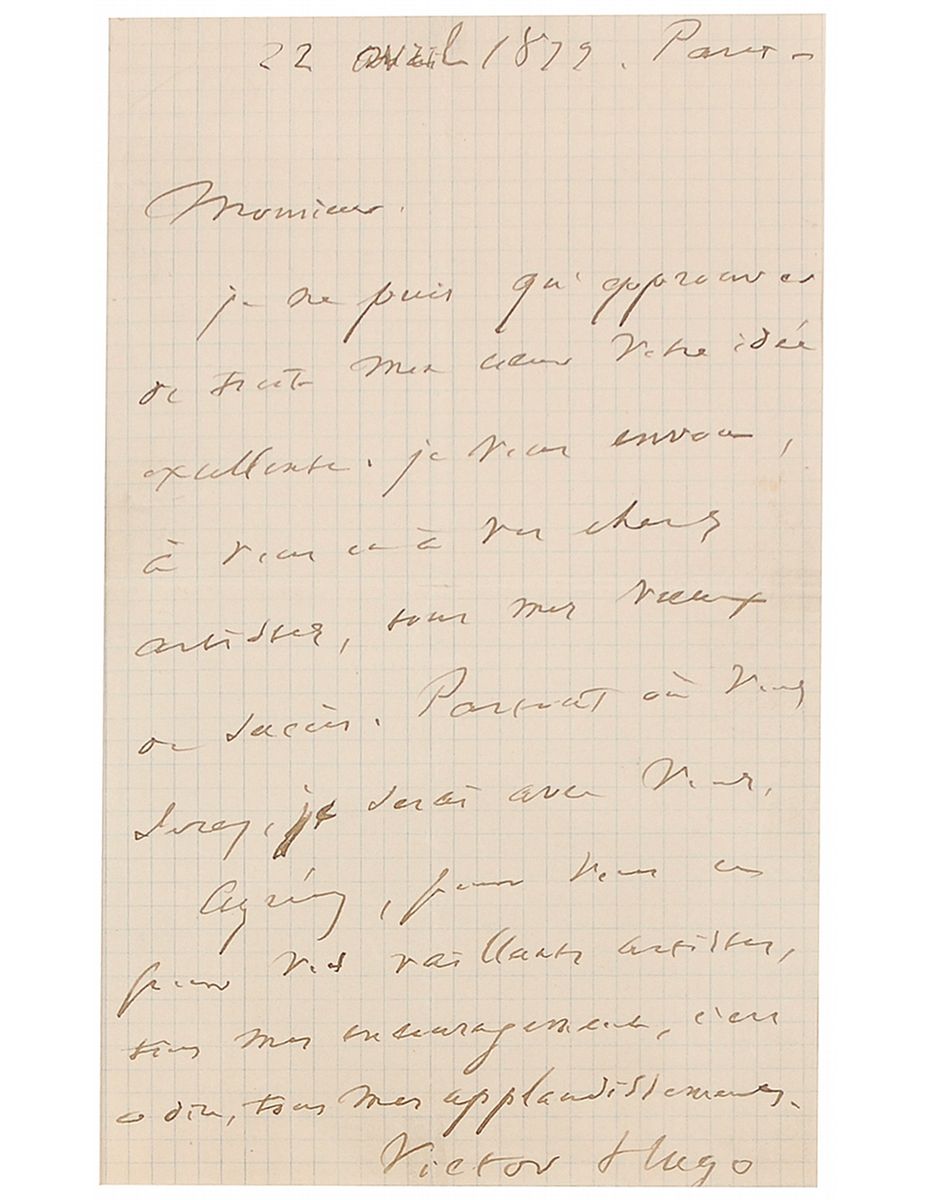 22 avril 1879. Paris –
Monsieur.
je ne puis qu'approuver
de tout mon cœur votre idée
excellente. je vous envoie,
à vous et à vos chers
artistes, tous mes vœux
de succès. Partout où vous
serez, je serai avec vous.
Agréez, pour vous et
pour vos vaillants artistes,
tous mes encouragements, c'est
à dire, tous mes applaudissements.
Victor Hugo